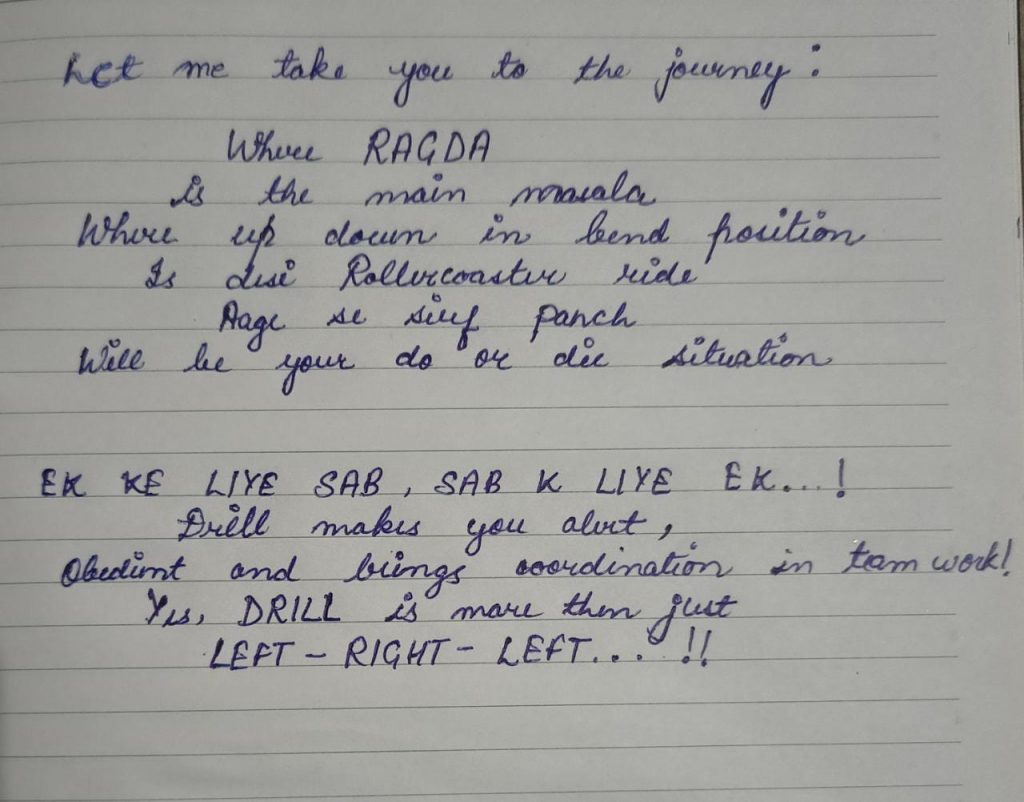 Let me take you to the journey :
Where RAGDA
is the main masala
Where up down in bend position
Is desi Rollercoaster ride
Aage se sirf panch
Will be your do or die situation
EK KE LIYE SAB, SAB K LIYE EK...!
Drill makes you alert,
Obedient and brings coordination in team work!
Yes, DRILL is more then just
LEFT - RIGHT - LEFT... !!